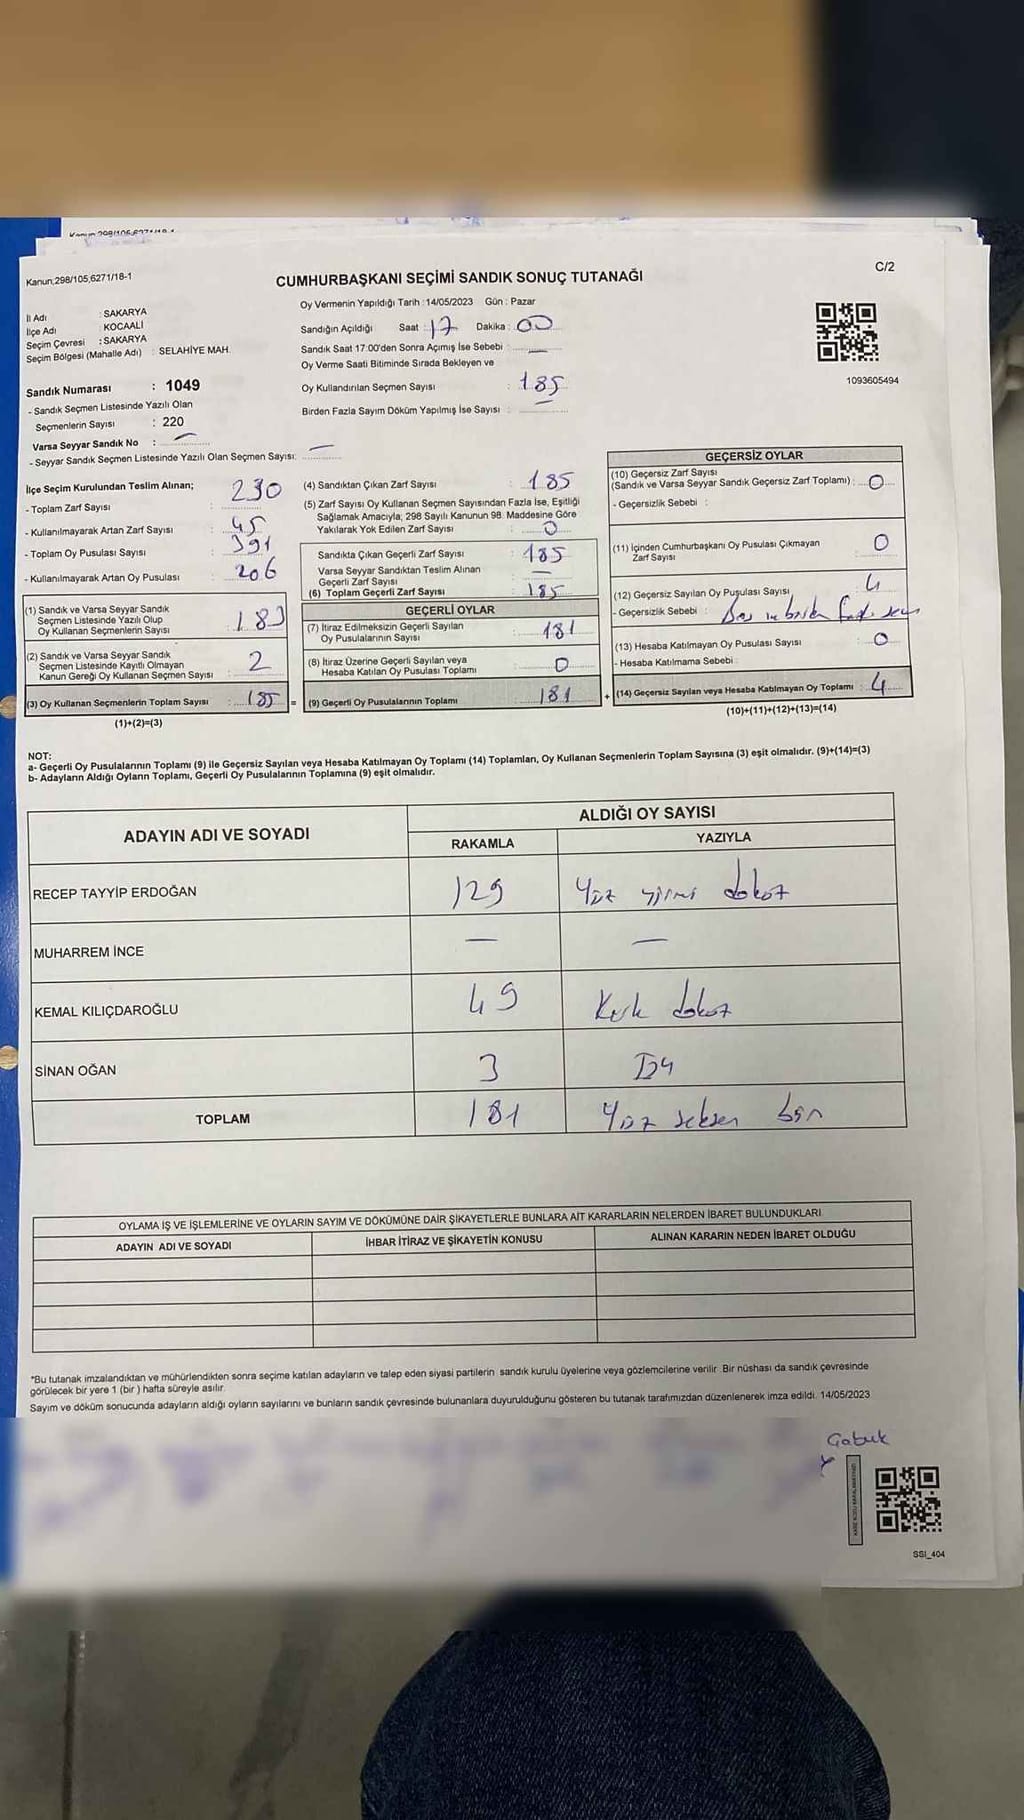 Kanun;298/105;6271/18-1
C/2
CUMHURBAŞKANI SEÇİMİ SANDIK SONUÇ TUTANAĞI
İl Adı : SAKARYA
İlçe Adı : KOCAALİ
Seçim Çevresi : SAKARYA
Seçim Bölgesi (Mahalle Adı) : SELAHİYE MAH.
Oy Vermenin Yapıldığı Tarih : 14/05/2023 Gün : Pazar
Sandığın Açıldığı Saat : 17 Dakika : 00
Sandık Saat 17:00'den Sonra Açımış İse Sebebi : —
Oy Verme Saati Bitiminde Sırada Bekleyen ve
Oy Kullandırılan Seçmen Sayısı : 185
Birden Fazla Sayım Döküm Yapılmış İse Sayısı : —
1093605494
Sandık Numarası : 1049
- Sandık Seçmen Listesinde Yazılı Olan
Seçmenlerin Sayısı : 220
Varsa Seyyar Sandık No : —
- Seyyar Sandık Seçmen Listesinde Yazılı Olan Seçmen Sayısı: —
İlçe Seçim Kurulundan Teslim Alınan;
- Toplam Zarf Sayısı : 230
- Kullanılmayarak Artan Zarf Sayısı : 45
- Toplam Oy Pusulası Sayısı : 391
- Kullanılmayarak Artan Oy Pusulası : 206
(1) Sandık ve Varsa Seyyar Sandık
Seçmen Listesinde Yazılı Olup
Oy Kullanan Seçmenlerin Sayısı : 183
(2) Sandık ve Varsa Seyyar Sandık
Seçmen Listesinde Kayıtlı Olmayan
Kanun Gereği Oy Kullanan Seçmen Sayısı : 2
(3) Oy Kullanan Seçmenlerin Toplam Sayısı : 185 =
(1)+(2)=(3)
(4) Sandıktan Çıkan Zarf Sayısı : 185
(5) Zarf Sayısı Oy Kullanan Seçmen Sayısından Fazla İse, Eşitliği
Sağlamak Amacıyla; 298 Sayılı Kanunun 98. Maddesine Göre
Yakılarak Yok Edilen Zarf Sayısı : 0
Sandıkta Çıkan Geçerli Zarf Sayısı : 185
Varsa Seyyar Sandıktan Teslim Alınan
Geçerli Zarf Sayısı : —
(6) Toplam Geçerli Zarf Sayısı : 185
GEÇERLİ OYLAR
(7) İtiraz Edilmeksizin Geçerli Sayılan
Oy Pusulalarının Sayısı : 181
(8) İtiraz Üzerine Geçerli Sayılan veya
Hesaba Katılan Oy Pusulası Toplamı : 0
(9) Geçerli Oy Pusulalarının Toplamı : 181 +
GEÇERSİZ OYLAR
(10) Geçersiz Zarf Sayısı
(Sandık ve Varsa Seyyar Sandık Geçersiz Zarf Toplamı) : 0
- Geçersizlik Sebebi :
(11) İçinden Cumhurbaşkanı Oy Pusulası Çıkmayan
Zarf Sayısı : 0
(12) Geçersiz Sayılan Oy Pusulası Sayısı : 4
- Geçersizlik Sebebi :
(13) Hesaba Katılmayan Oy Pusulası Sayısı : 0
- Hesaba Katılmama Sebebi :
(14) Geçersiz Sayılan veya Hesaba Katılmayan Oy Toplamı : 4
(10)+(11)+(12)+(13)=(14)
NOT:
a- Geçerli Oy Pusulalarının Toplamı (9) ile Geçersiz Sayılan veya Hesaba Katılmayan Oy Toplamı (14) Toplamları, Oy Kullanan Seçmenlerin Toplam Sayısına (3) eşit olmalıdır. (9)+(14)=(3)
b- Adayların Aldığı Oyların Toplamı, Geçerli Oy Pusulalarının Toplamına (9) eşit olmalıdır.
ADAYIN ADI VE SOYADI ALDIĞI OY SAYISI
RAKAMLA YAZIYLA
RECEP TAYYİP ERDOĞAN 129 Yüz yirmi dokuz
MUHARREM İNCE — —
KEMAL KILIÇDAROĞLU 49 Kırk dokuz
SİNAN OĞAN 3 Üç
TOPLAM 181 Yüz seksen bir
OYLAMA İŞ VE İŞLEMLERİNE VE OYLARIN SAYIM VE DÖKÜMÜNE DAİR ŞİKAYETLERLE BUNLARA AİT KARARLARIN NELERDEN İBARET BULUNDUKLARI
ADAYIN ADI VE SOYADI İHBAR İTİRAZ VE ŞİKAYETİN KONUSU ALINAN KARARIN NEDEN İBARET OLDUĞU
*Bu tutanak imzalandıktan ve mühürlendikten sonra seçime katılan adayların ve talep eden siyasi partilerin sandık kurulu üyelerine veya gözlemcilerine verilir. Bir nüshası da sandık çevresinde
görülecek bir yere 1 (bir ) hafta süreyle asılır.
Sayım ve döküm sonucunda adayların aldığı oyların sayılarını ve bunların sandık çevresinde bulunanlara duyurulduğunu gösteren bu tutanak tarafımızdan düzenlenerek imza edildi. 14/05/2023
SSI_404